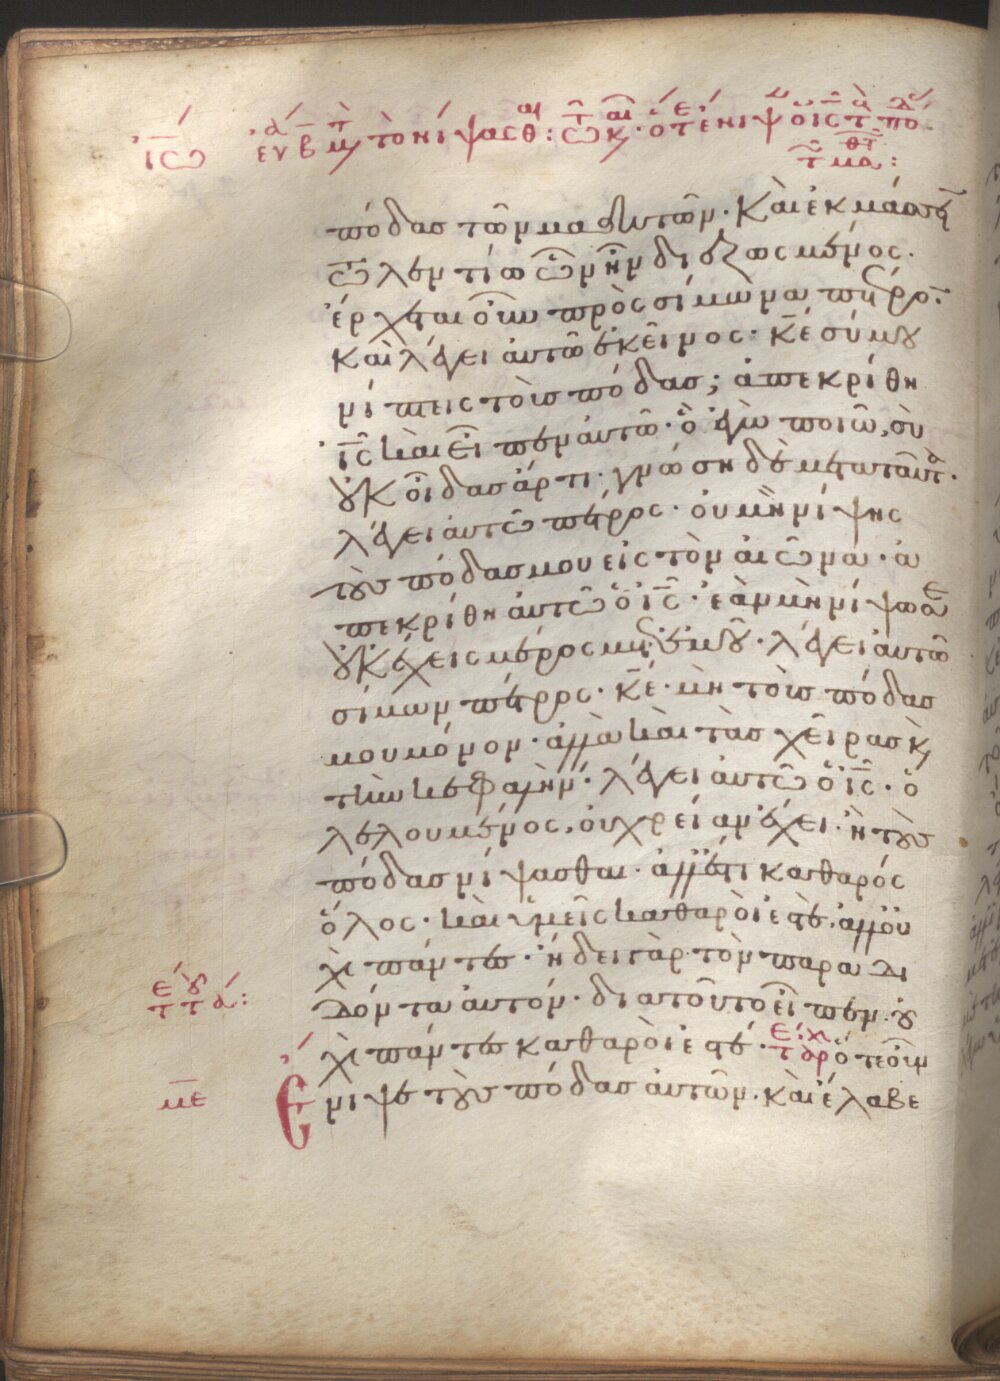 πόδας τῶν μαθητῶν. Καὶ ἐκμάσσει(ν)
τῶ λεντίω ῶ ἦν διεζωσμένος.
ἔρχεται οὖν πρὸς σίμωνα πέτρον.
καὶ λέγει αὐτῶ ἐκεῖνος. κ̅ε̅ σύ μου
νίπτεις τοὺς πόδας; ἀπεκρίθη
ι̅ς̅ καὶ εἶπεν αὐτῶ. ὃ ἐγὼ ποιῶ, σὺ
οὐκ οἶδας ἄρτι. γνώση δὲ μετὰ ταῦτα.
λέγει αὐτῶ πέτρος. οὐ μὴ νίψης
τοὺς πόδας μου εἰς τὸν αἰῶνα. ἀ
πεκρίθη αὐτῶ ὁ ι̅ς̅. ἐὰν μὴ νίψω σε
οὐκ ἔχεις μέρος μετ' ἐμοῦ. λέγει αὐτῶ
σίμων πέτρος. κ̅ε̅. μὴ τοὺς πόδας
μου μόνον. ἀλλὰ καὶ τὰς χεῖρας κ(αὶ)
τὴν κεφαλήν. λέγει αὐτῶ ὁ ι̅ς̅. ὁ
λελουμένος, οὐ χρείαν ἔχει. ἢ τοὺς
πόδας νίψασθαι. ἀλλ' ἔστι καθαρός
ὅλος. καὶ ὑμεῖς καθαροί ἐστε. ἀλλ' οὐ
χὶ πάντες. ἤδει γὰρ τὸν παραδι
δόντα αὐτόν. διὰ τοῦτο εἶπεν. οὐ
χὶ πάντες καθαροί ἐστε. ὅτε οὖν
μ̅ε̅ Ἔνιψε τοὺς πόδας αὐτῶν. καὶ ἔλαβε